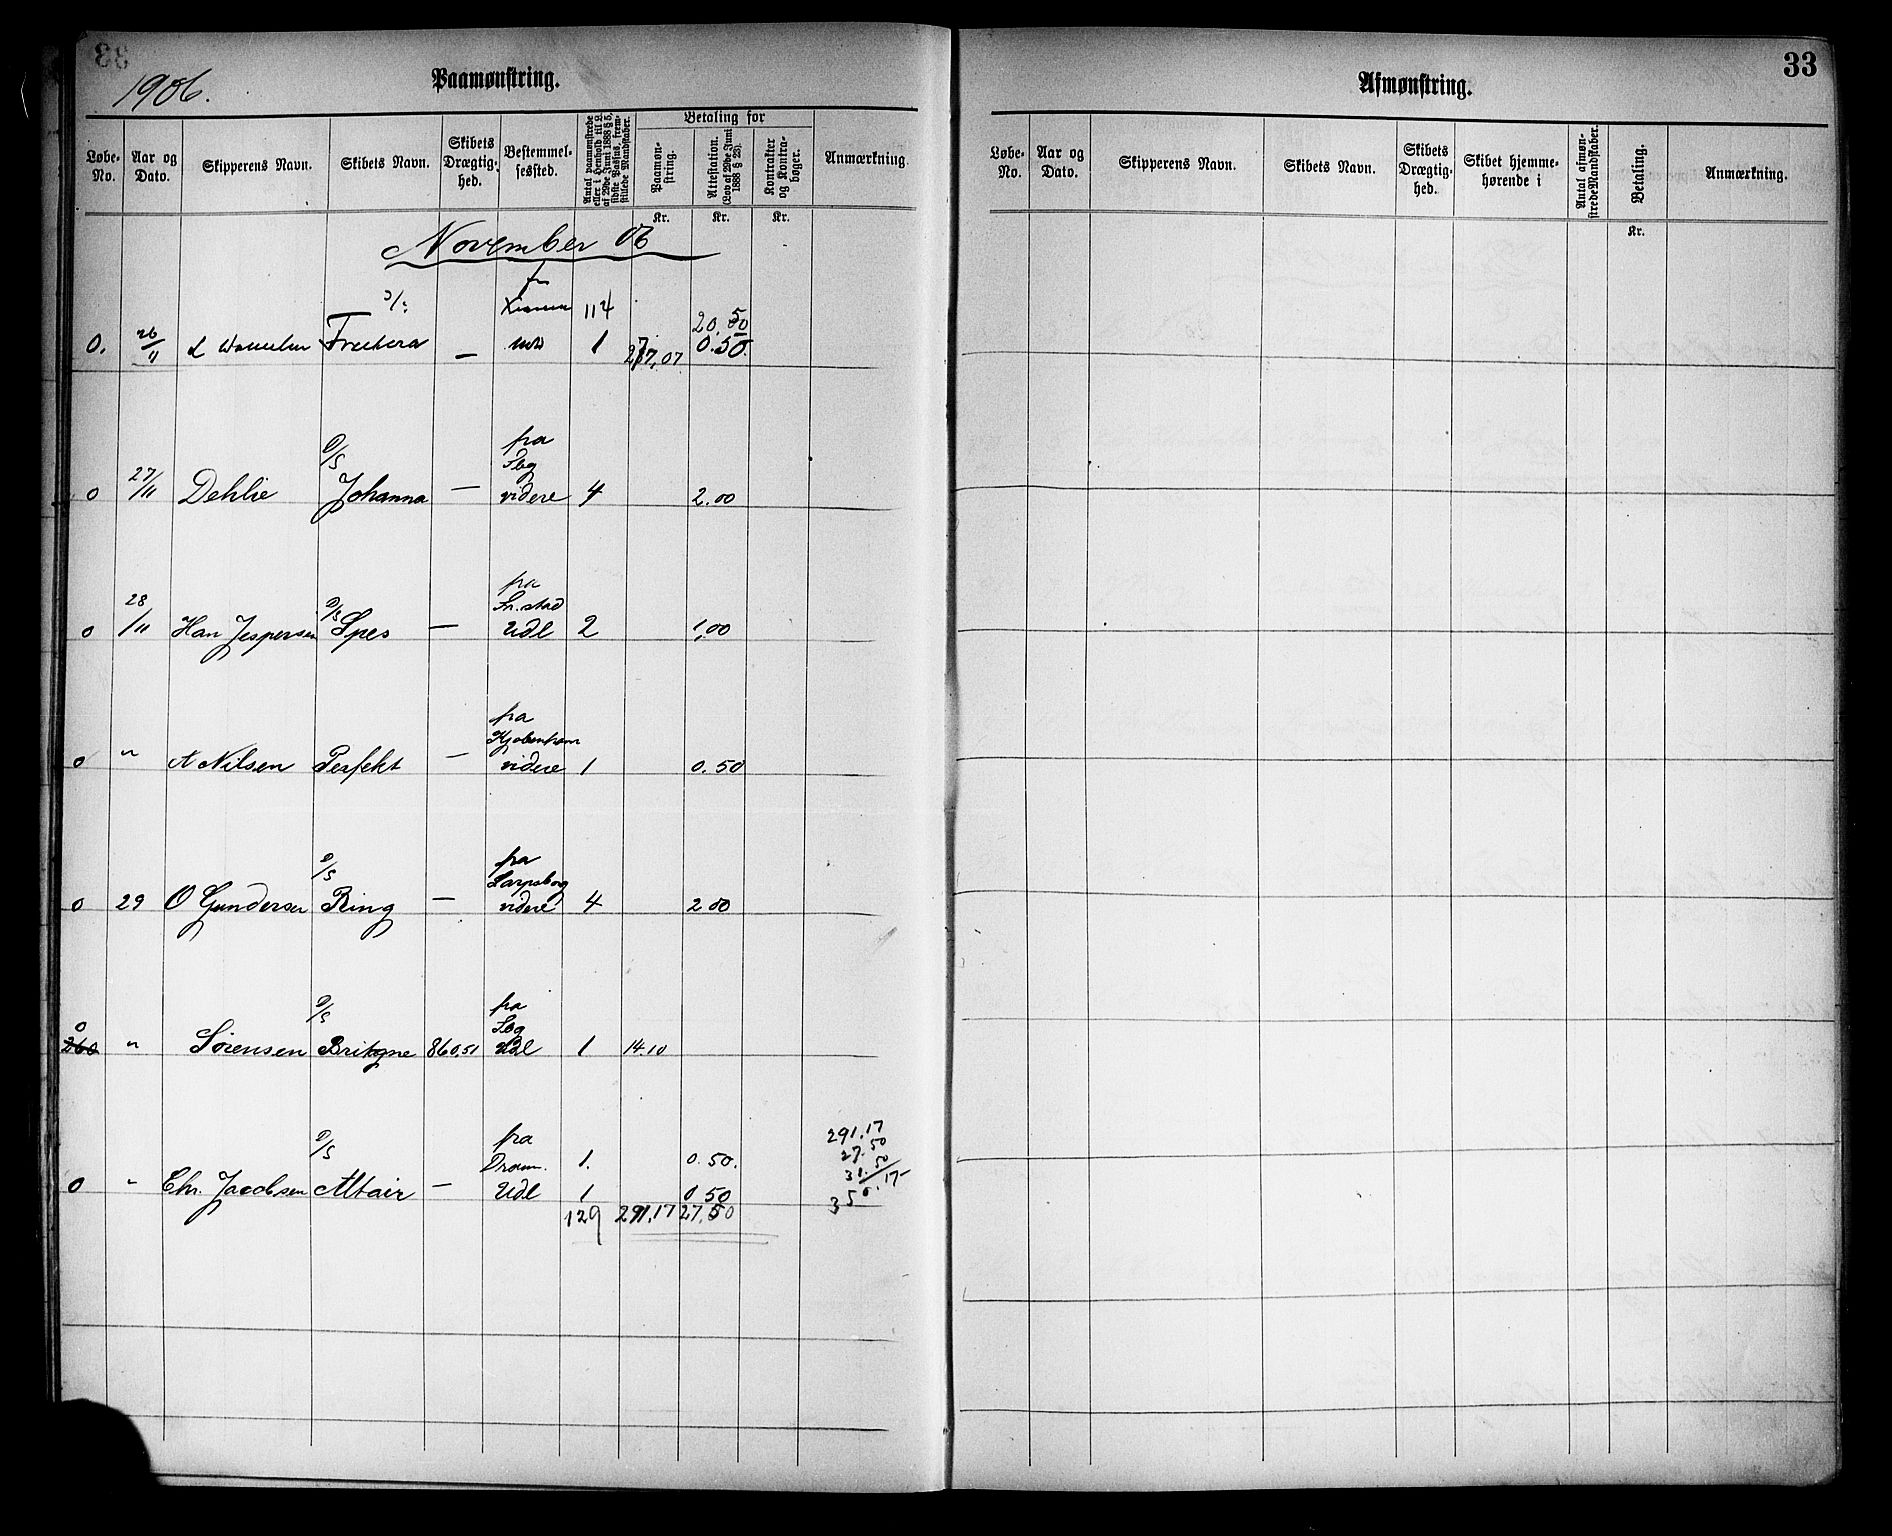 1906.
Paamønstring.
Løbe-No.
Aar og Dato.
Skipperens Navn.
Skibets Navn.
Skibets Drægtig-hed.
Bestemmel-sessted.
Antal paamønstrede eller i Henhold til L. af 29de Juni 1888 § 5, sidste Passus, frem-stillede Mandskaber.
Betaling for
Paamøn-string.
Attestation. (Lov af 29de Juni 1888 § 23).
Kontrakter og Kontra-bøger.
Anmærkning.
Kr. Kr. Kr.
November 06
114 20.50
0. 26/11 Freihera — 1 277,07 0.50.
D/S fra
Sbg
0 27/11 Dehlie Johanna — videre 4 2.00
fra
D/S Fr.stad
0 28/11 Han Jespersen Spes — Udl 2 1,00
fra
Kjøbenhavn
0 " A Nilsen Perfekt — videre 1 0.50
D/S fra
Sarpsborg
0 29 O Gundersen Ring — videre 4 2.00
D/S fra
0 Sbg
260 " Sørensen Britagne 860,51 Udl 1 14.10
D/S fra
Dram. 1. 0.50.
0 " Chr. Jacobsen Altair — Udl 1 0 50
129 291,17 27,50
291.17
27.50
31.50
350.17
33
Afmønstring.
Løbe-No.
Aar og Dato.
Skipperens Navn.
Skibets Navn.
Skibets Drægtig-hed.
Skibet hjemme-hørende i
Antal afmøn-strede Mandskaber.
Betaling.
Anmærkning.
Kr.